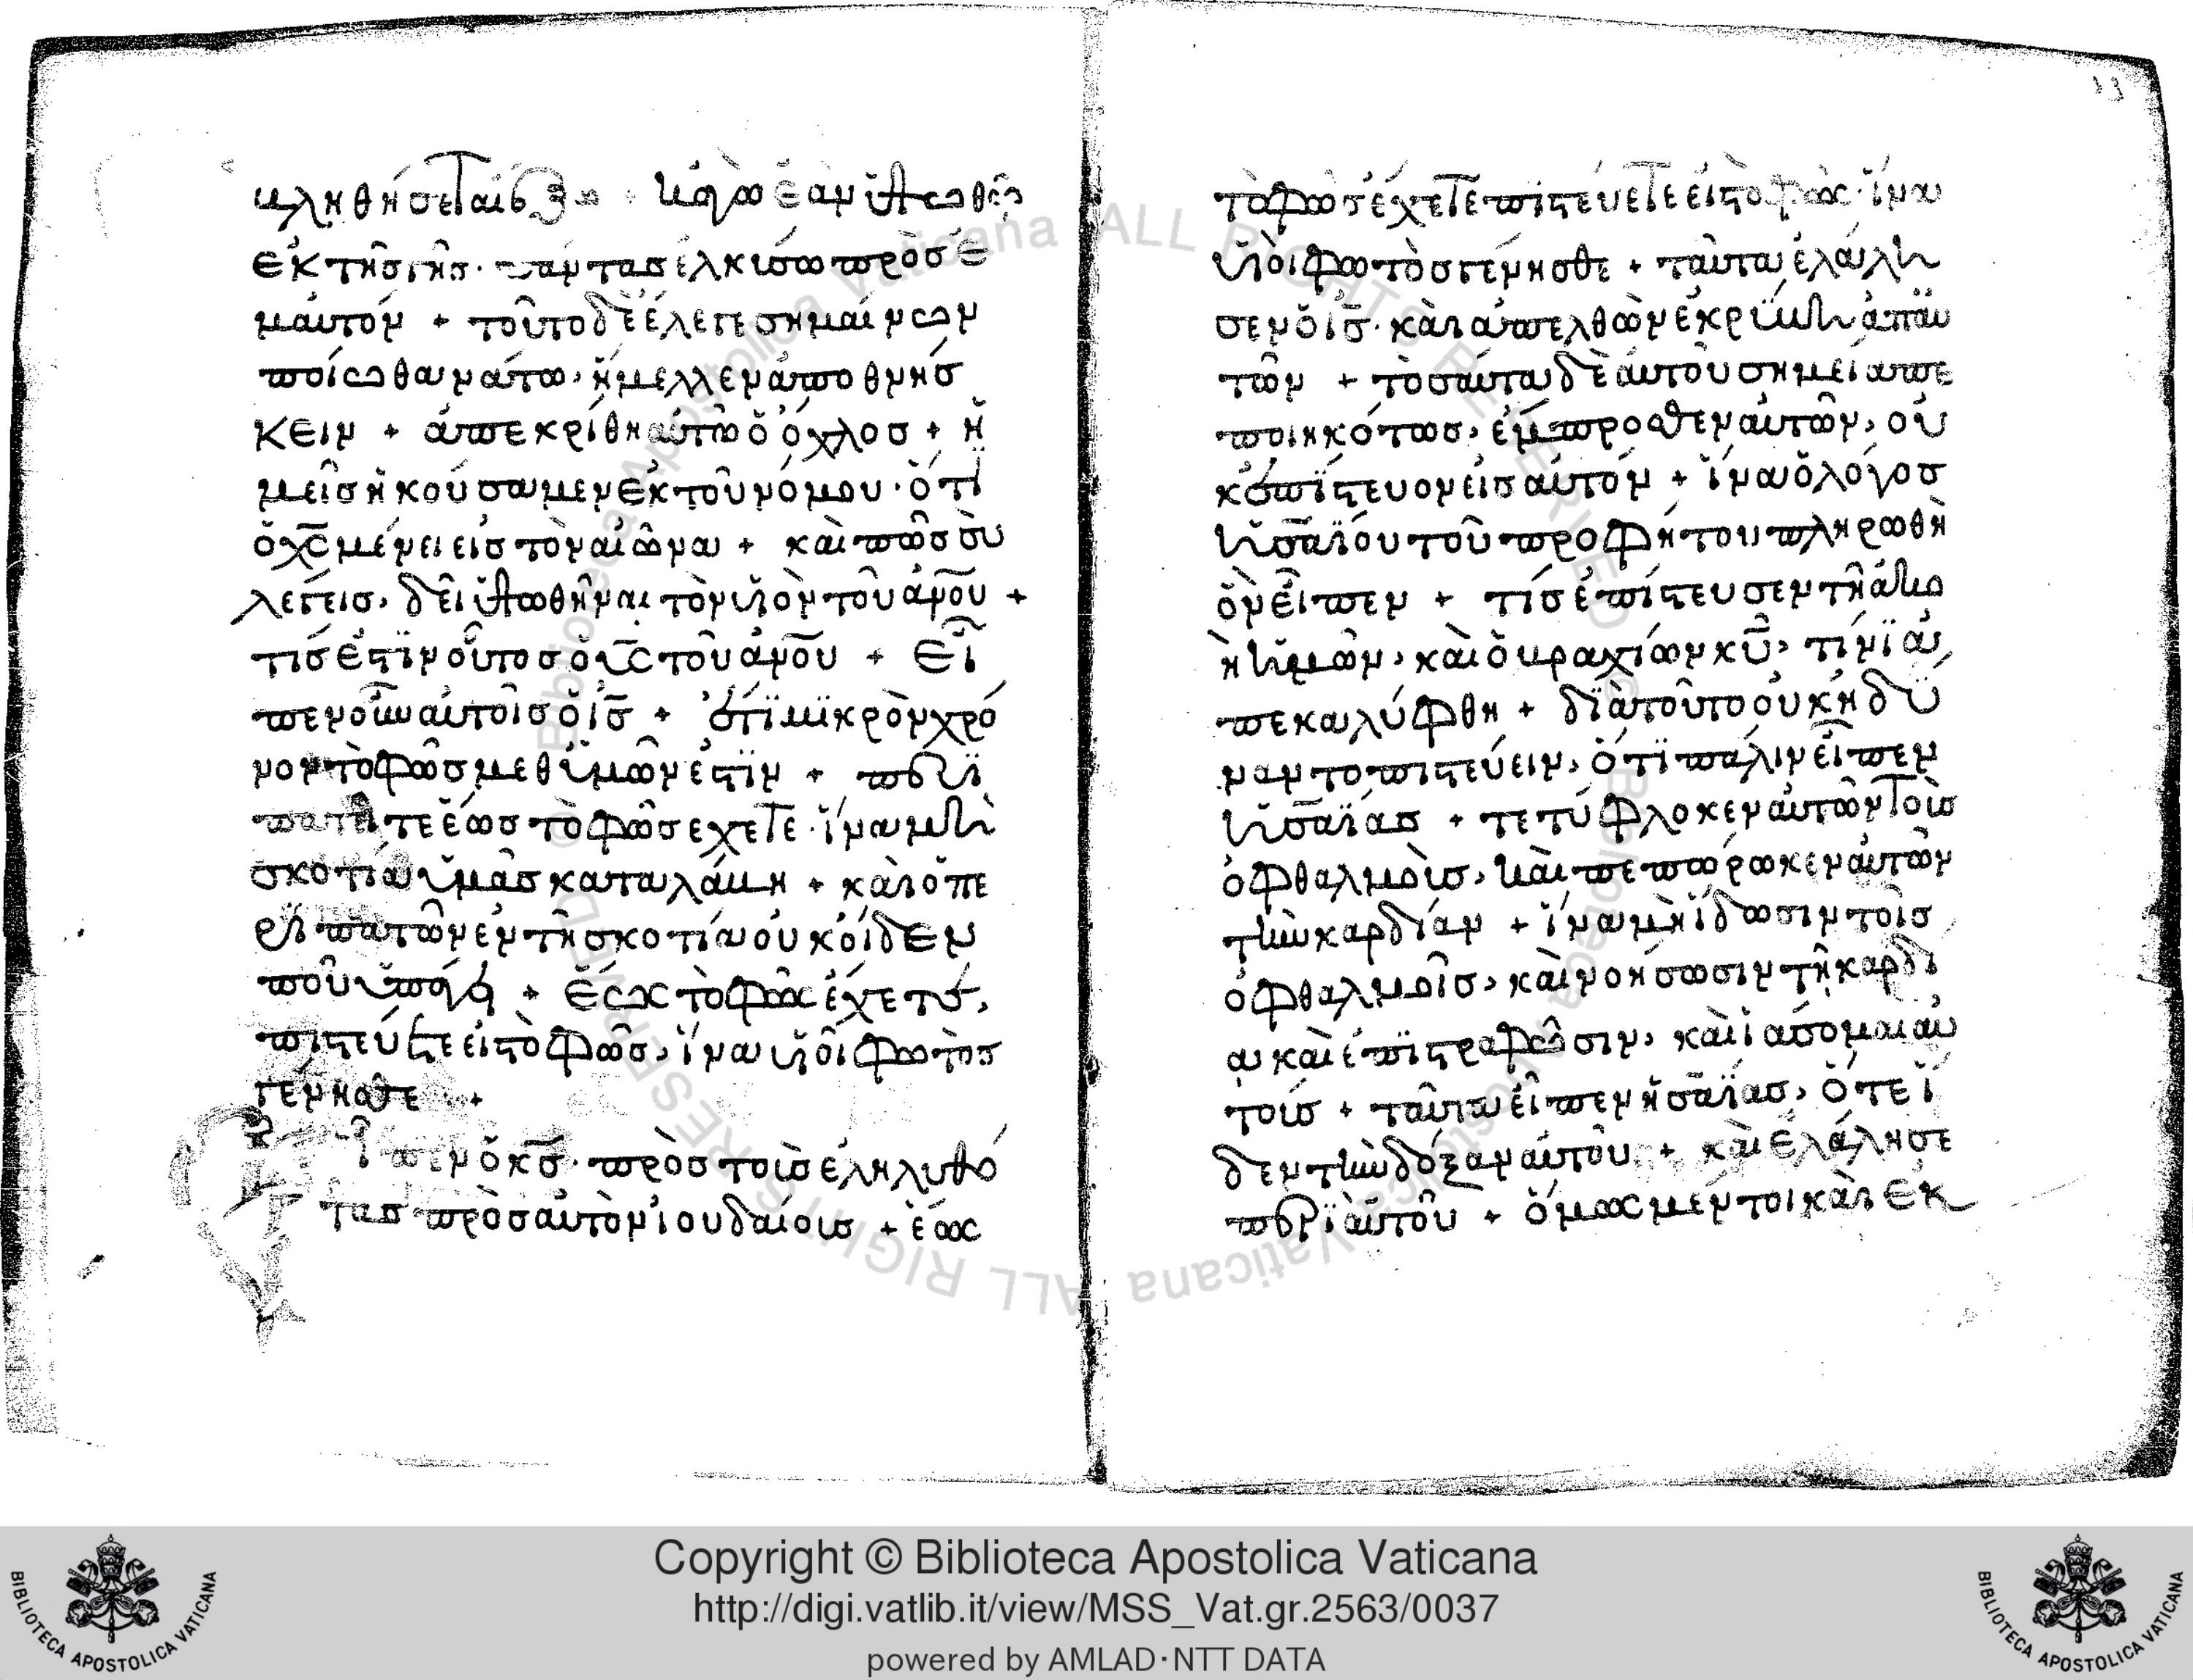 κληθήσεται ἔξω + κἀγὼ ἐὰν ὑψωθῶ
ἐκ τῆς γῆς· πάντας ἑλκίσω πρὸς ἐ
μαυτόν + τοῦτο δὲ ἔλεγε σημαίνων
ποίω θανάτω, ἤμελλεν ἀποθνήσ
κειν + ἀπεκρίθη αὐτῶ ὁ ὄχλος + ἡ
μεῖς ἠκούσαμεν ἐκ τοῦ νόμου· ὅτι
ὁ χς μένει εἰς τὸν αἰῶνα + καὶ πῶς σὺ
λέγεις, δεῖ ὑψωθῆναι τὸν υἱὸν τοῦ ἀνου +
τίς ἐστϊν οὗτος ὁ υς τοῦ ἀνου + εἶ
πεν οὖν αὐτοῖς ὁ ις + ὅτι μϊκρὸν χρό
νον τὸ φῶς μεθ ὑμῶν ἐστϊν + περϊ
πατῆτε ἕως τὸ φῶς εχετε· ἵνα μὴ
σκοτία ὑμᾶς καταλάβη + καὶ ὁ πε
ρϊπατῶν ἐν τῆ σκοτία οὐκ οἶδεν
ποῦ ὑπάγει + ἕως τὸ φῶς ἔχετε,
πιστεύετε εἰς τὸ φῶς, ἵνα υἱοὶ φωτὸς
γένησθε +
Εἶπεν ὁ κς· πρὸς τοὺς ἐληλυθό
τας πρὸς αὐτὸν ἰουδαίους + ἕως
τὸ φῶς ἔχετε πιστεύετε εἰς τὸ φῶς· ἵνα
υἱοὶ φωτὸς γένησθε + ταῦτα ἐλάλη
σεν ὁ ις· καὶ ἀπελθὼν ἐκρύβη ἀπ αυ
τῶν + τοσαῦτα δὲ αὐτοῦ σημεῖα πε
ποιηκότως, ἔμπροσθεν αὐτῶν, οὐ
κ ἐπίστευον εἰς αὐτόν + ἵνα ὁ λόγος
ἠσαΐου τοῦ προφήτου πληρωθῆ
ὃν εἶπεν + τίς ἐπίστευσεν τῆ ἀκο
ὴ ἡμῶν, καὶ ὁ βραχίων κυ, τίνϊ ἀ
πεκαλύφθη + δϊὰ τοῦτο οὐκ ἠδύ
ναντο πιστεύειν, ὅτϊ πάλιν εἶπεν
ἠσαΐας + τετύφλοκεν αὐτῶν τοὺς
ὀφθαλμοὺς, καὶ πεπώρωκεν αὐτῶν
τὴν καρδίαν + ἵνα μὴ ἴδωσιν τοῖς
ὀφθαλμοῖς, καὶ νοήσωσιν τῆ καρδί
α καὶ ἐπϊστραφῶσιν, καὶ ἰάσομαι αὐ
τούς + ταῦτα εἶπεν ἠσαΐας, ὅτε ἴ
δεν τὴν δόξαν αὐτοῦ + καὶ ἐλάλησε
περϊ αὐτοῦ + ὅμως μέντοι καὶ ἐκ
Copyright © Biblioteca Apostolica Vaticana
http://digi.vatlib.it/view/MSS_Vat.gr.2563/0037
powered by AMLAD·NTT DATA
BIBLIOTECA APOSTOLICA VATICANA
BIBLIOTECA APOSTOLICA VATICANA